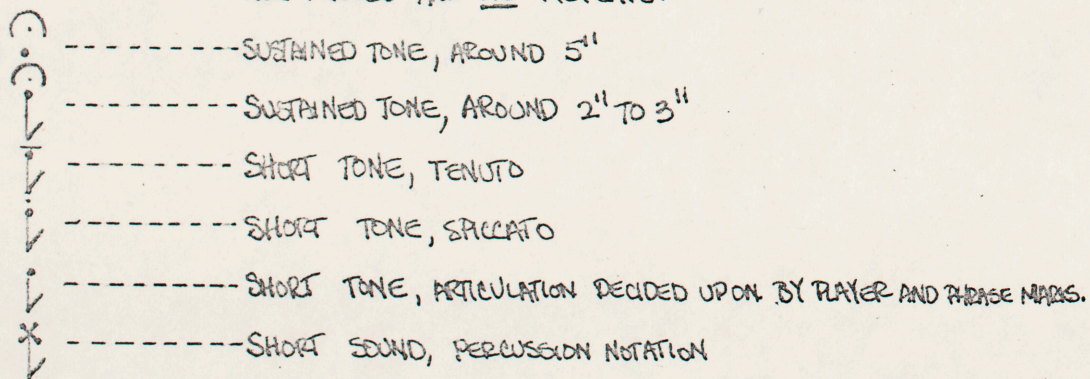 SUSTAINED TONE, AROUND 5"
SUSTAINED TONE, AROUND 2" TO 3"
SHORT TONE, TENUTO
SHORT TONE, SPICCATO
SHORT TONE, ARTICULATION DECIDED UPON BY PLAYER AND PHRASE MARKS.
SHORT SOUND, PERCUSSION NOTATION